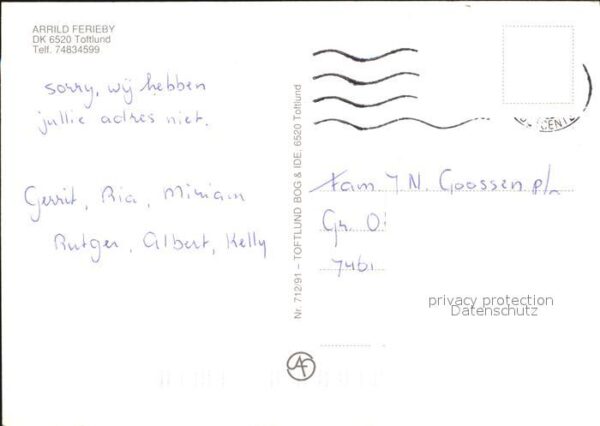 ARRILD FERIEBY
DK 6520 Toftlund
Telf. 74834599
sorry, wij hebben
jullie adres niet.
Gerrit, Ria, Miriam
Rutger, Albert, Kelly
Nr. 712/91 – TOFTLUND BOG & IDE. 6520 Toftlund
Fam J.N. Goossen p/
Gr. O
privacy protection
Datenschutz
AF